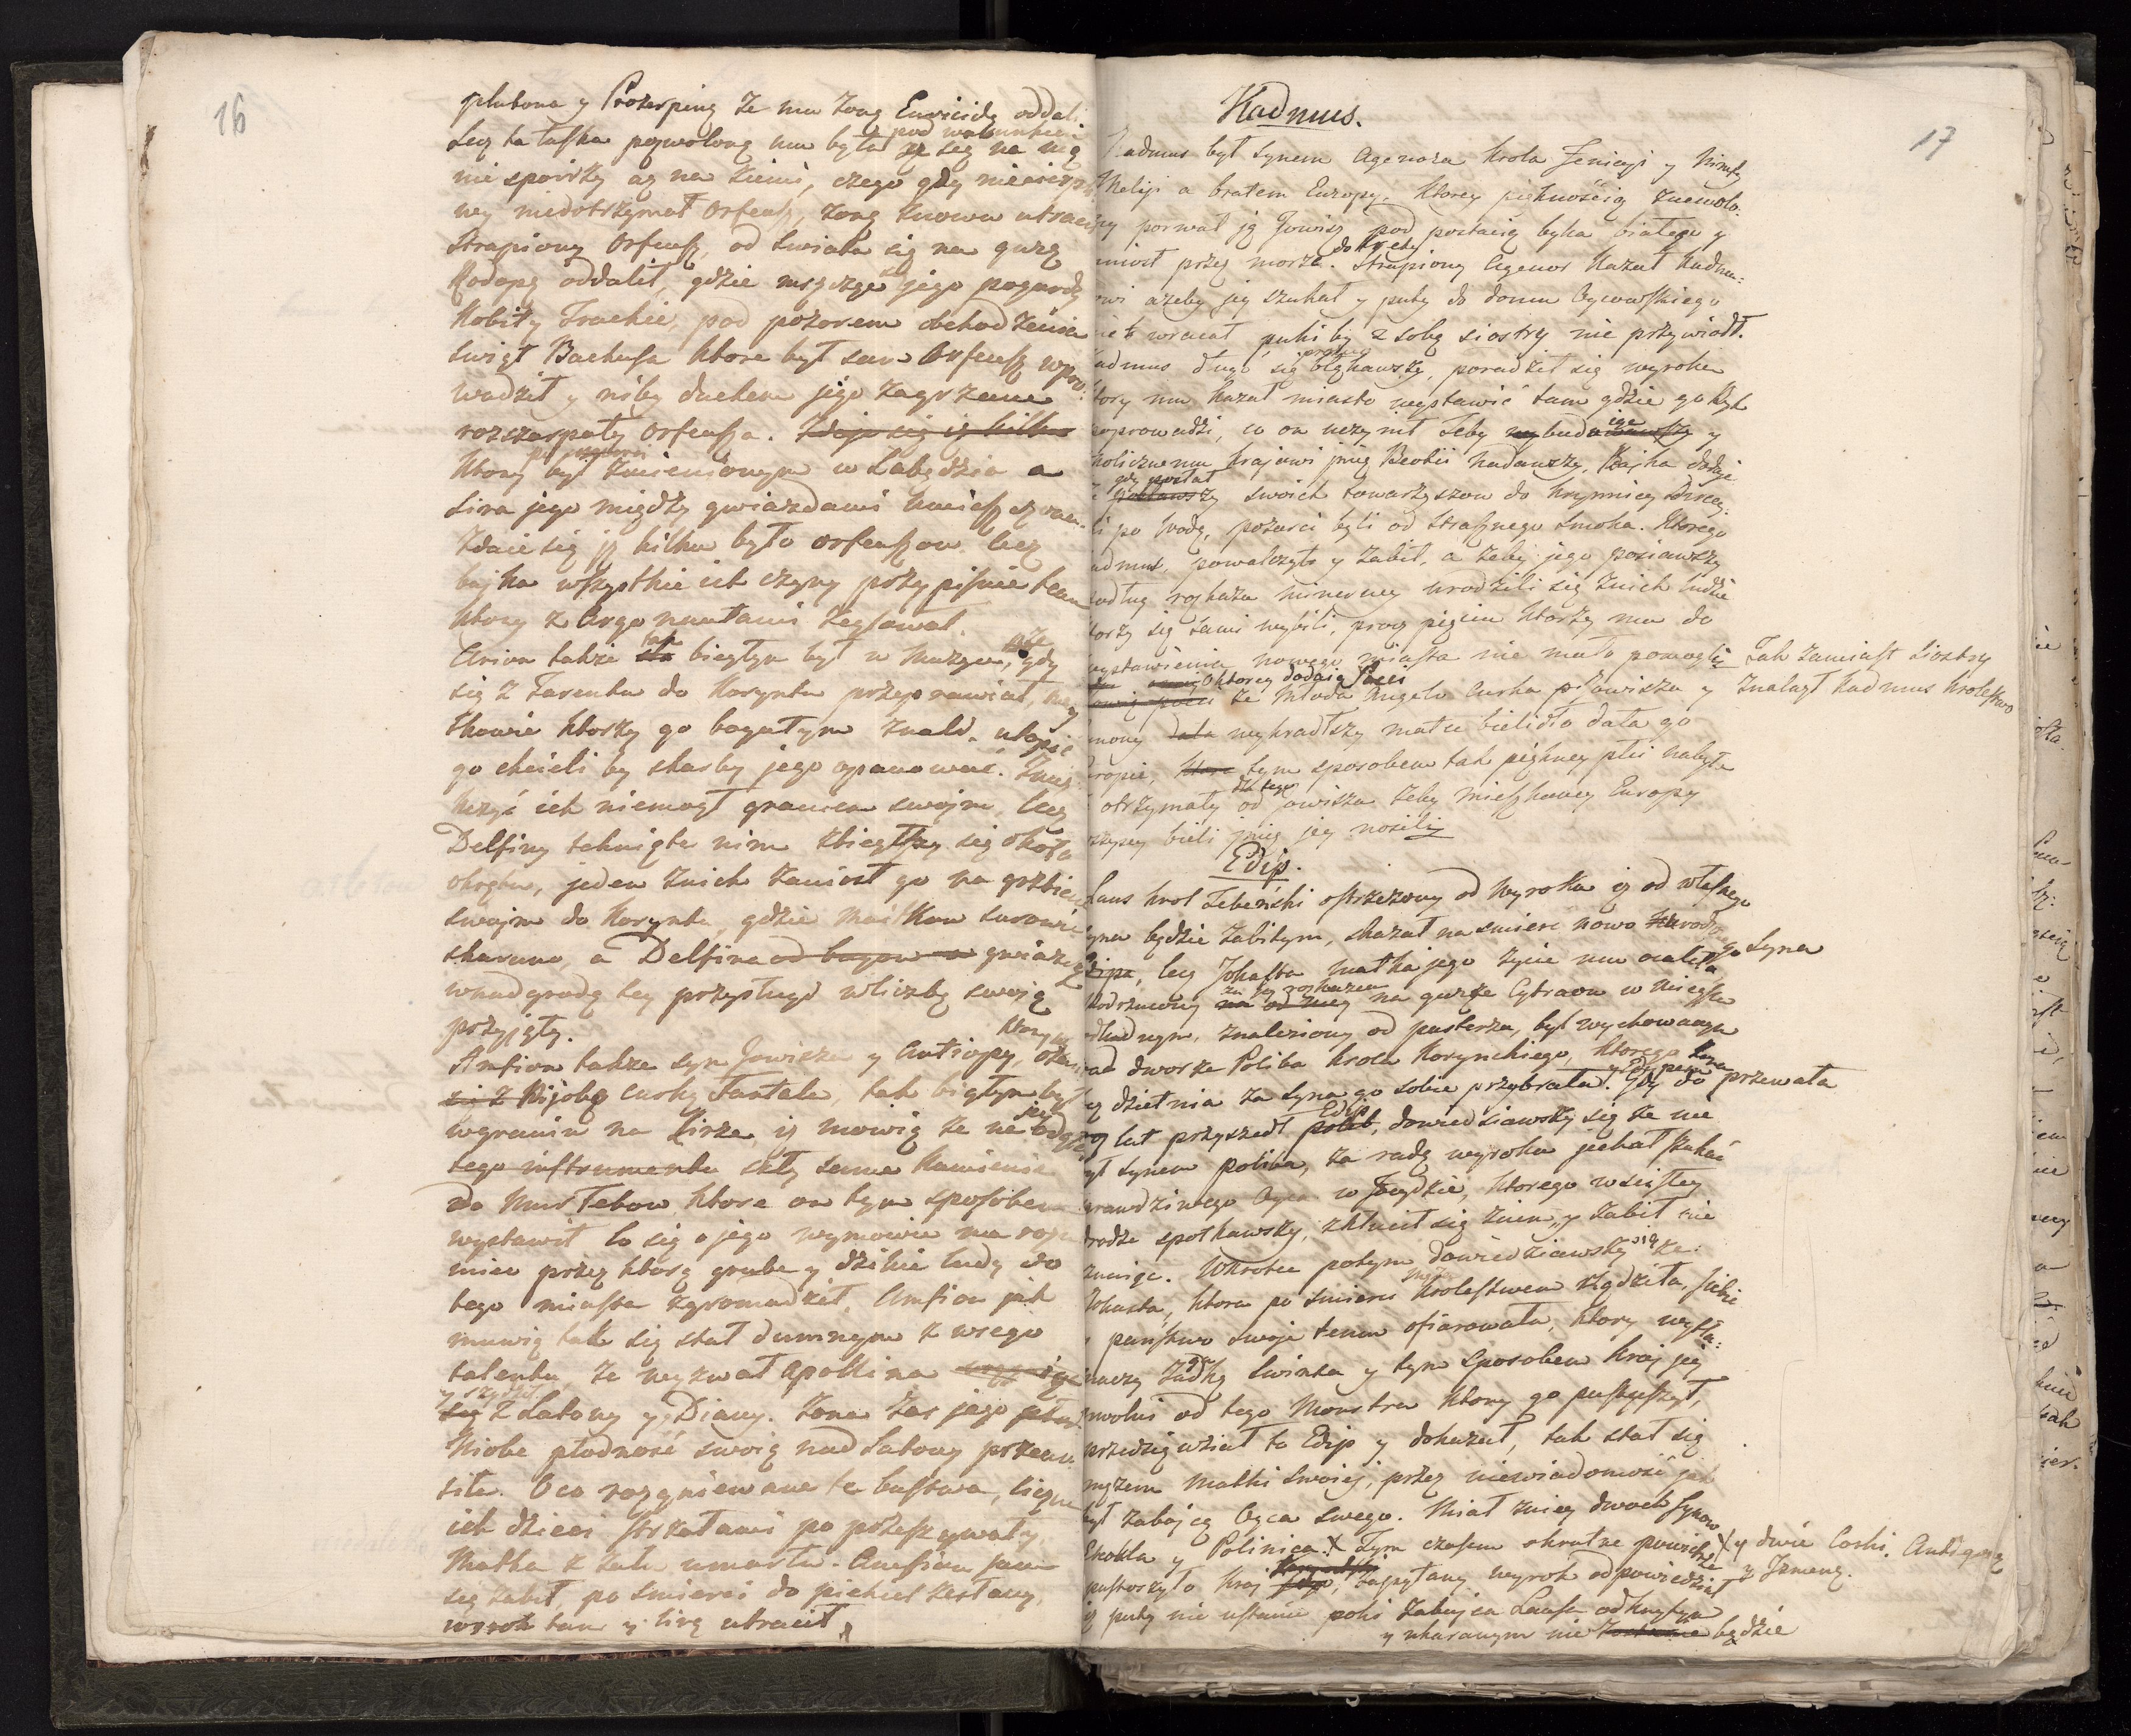 16
plutona y Prozerpiny że mu żonę Euricidę oddali.
Lecz ta łaska pozwoloną mu była pod warunkiem że się na nią
nie spoirzy aż na ziemi, czego gdy niecierpli
wy niedotrzymał Orfeusz, żonę znowu utracił
Strapiony Orfeusz, od swiata się na gurę
Rodopę oddalił, gdzie mszczące się jego pogardy
Kobity Trackie, pod pozorem obchodzenia
swiąt Bachusa ktore był sam Orfeusz wpro:
wadził y niby duchem jego zagrzane
rozszarpały Orfeusza. Zdaje się iż kilku
Ktory po smierci był zmienionym w Labędzia a
Lira jego między gwiazdami umieszczona.
Zdaie się iż kilku było orfeuszow lecz
bajka wszystkie ich czyny przypisuie temu
ktory z Argonautami żeglował.
Arion także tak biegłym był w muzyce, że gdy
się z Tarentu do Koryntu przeprawiał, maj
tkowie ktorzy go bogatym znali, utopić
go chcieli by skarby jego opanować. Zmięk
kczyć ich niemogł graniem swojm, lecz
Delfiny tchnięte nim zbiegłszy się około
okrętu, jeden znich zaniosł go na grzbiecie
swojm do Koryntu, gdzie majtkow surowie
skarano, a Delfina od bogow a gwiazdy
wnadgrodę tey przysługi wliczbę swoię
przyjęły.
Amfion także syn Jowisza y Antiopy, ktory ożenił
się z Nijobą curką Tantala, tak biegłym był
wgraniu na Lirze, iż mowią że na jej odgłos
tego instrumentu szły same kamienie
do Mur Tebow ktore on tym sposobem
wystawił to się o jego wymowie ma rozu
mieć przez ktorą grube y dzikie ludy do
tego miasta zgromadził. Amfion jak
muwią tak się stał dumnym z wego
talentu, że wyzwał Apollina
y szydził się z Latony y Diany. Żona zas jego
Niobe płodność swoią nad Latony przeno
siła. Oco rozgniewane te bustwa, liczne
ich dzieci strzałami poprzeszywały.
Matka z żalu umarła. Amfion sam
się zabił, po smierci do piekieł zesłany,
wzrok tam y lirę utracił
17
Kadmus.
Kadmus był synem Agenora Krola Fenicyi y Nimfy
Melij a bratem Europy. Ktorey pięknością zniewolo:
ny porwał ją Jowisz pod postacią byka białego y
uniosł przez morze do Krety. Strapiony Agenor kazał Kadmu:
owi ażeby jej szukał y puty do domu Oycowskiego
nie wracał puki by z sobą siostry nie przywiodł.
Kadmus dugo się proźno błąkawszy, poradził się wyroku
ktory mu kazał miasto wystawić tam gdzie go byk
zaprowadzi, co on uczynił Teby wybudowawszy y
okolicznemu krajowi jmię Beotii nadawszy. Bajka dodaje
że gdy posłał posławszy swoich towarzyszow do krynnicy Dircey.
li po wodę, pożarci byli od strasznego smoka. Ktorego
Kadmus, powalczyło y zabił, a zeby jego posiawszy
podług rozkazu minerwy urodzili się znich ludzie
ktorzy się sami wybili, procz pięciu ktorzy mu do
wystawienia nowego miasta nie mało pomogli Tak zamiast Siostry
znalazł Kadmus krolestwo
O ktorey dodaią Poeci
że młoda Angelo curka pisowisza y
Junony dała wykradłszy matce bielidło dała go
Europie, ktore tym sposobem tak pięknej płci nabyła
że otrzymały dla tego od jowisza żeby mieszkancy Europy
wszyscy bieli jmię jey nosili
Edip.
Laus krol Tebeński ostrzeżony od Wyroku iż od własnego
syna będzie zabitym, skazał na smierc nowo narodzonego Syna
Edipa, lecz Jokasta matka jego życie mu ocaliła
Podrzucony za jej rozkazem na od niey na gurze Cytraon w mieyscu
odludnym, znaleziony od pasterza, był wychowanym
nad dworze Poliba krola Korynckiego, ktorego żona
bez dzietnia za syna go sobie przybrała. y Edypem Gdy do przezwała
 lat przyszedł Edip, dowiedziawszy się że nie
był synem poliba, za radą wyroku jechał szukać
prawdziwego Oyca w Focydzie, ktorego w scisłey
drodze spotkawszy, zkłucił się znim, y zabił nie
znając. Wkrotce potym dowiedziawszy się że
Jokasta, ktora po smierci męża Krolestwem rządziła, siebie
y państwo swoje temu ofiarowała, ktory wytłu:
maczy zagadkę Swinxa y tym sposobem kraj jej
uwolni od tego Monstra ktory go pustoszył,
przedsięwziął to Edip y dokazał, tak stał się
mężem Matki Swoiej, przez niewiadomość jak
był zabojcą Oyca swego. Miał zniey dwoch Synow
Eteokla y Polinica. X Tym czasem okrutne powietrze X y dwie Corki. Antigonę
y Ismenę.
pustoszyło kraj, zapytany wyrok odpowiedział
iż puty nie ustanie poki zabojca Lausa odkrytym
y ukaranym nie zostanie będzie